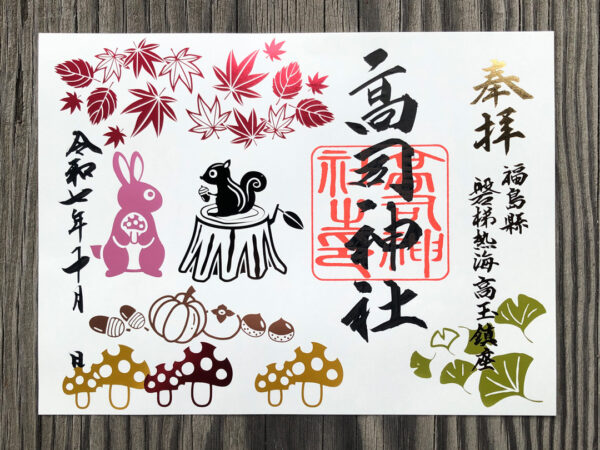 奉拝
福島縣
磐梯熱海高玉鎮座
高司神社
令和七年十月 日